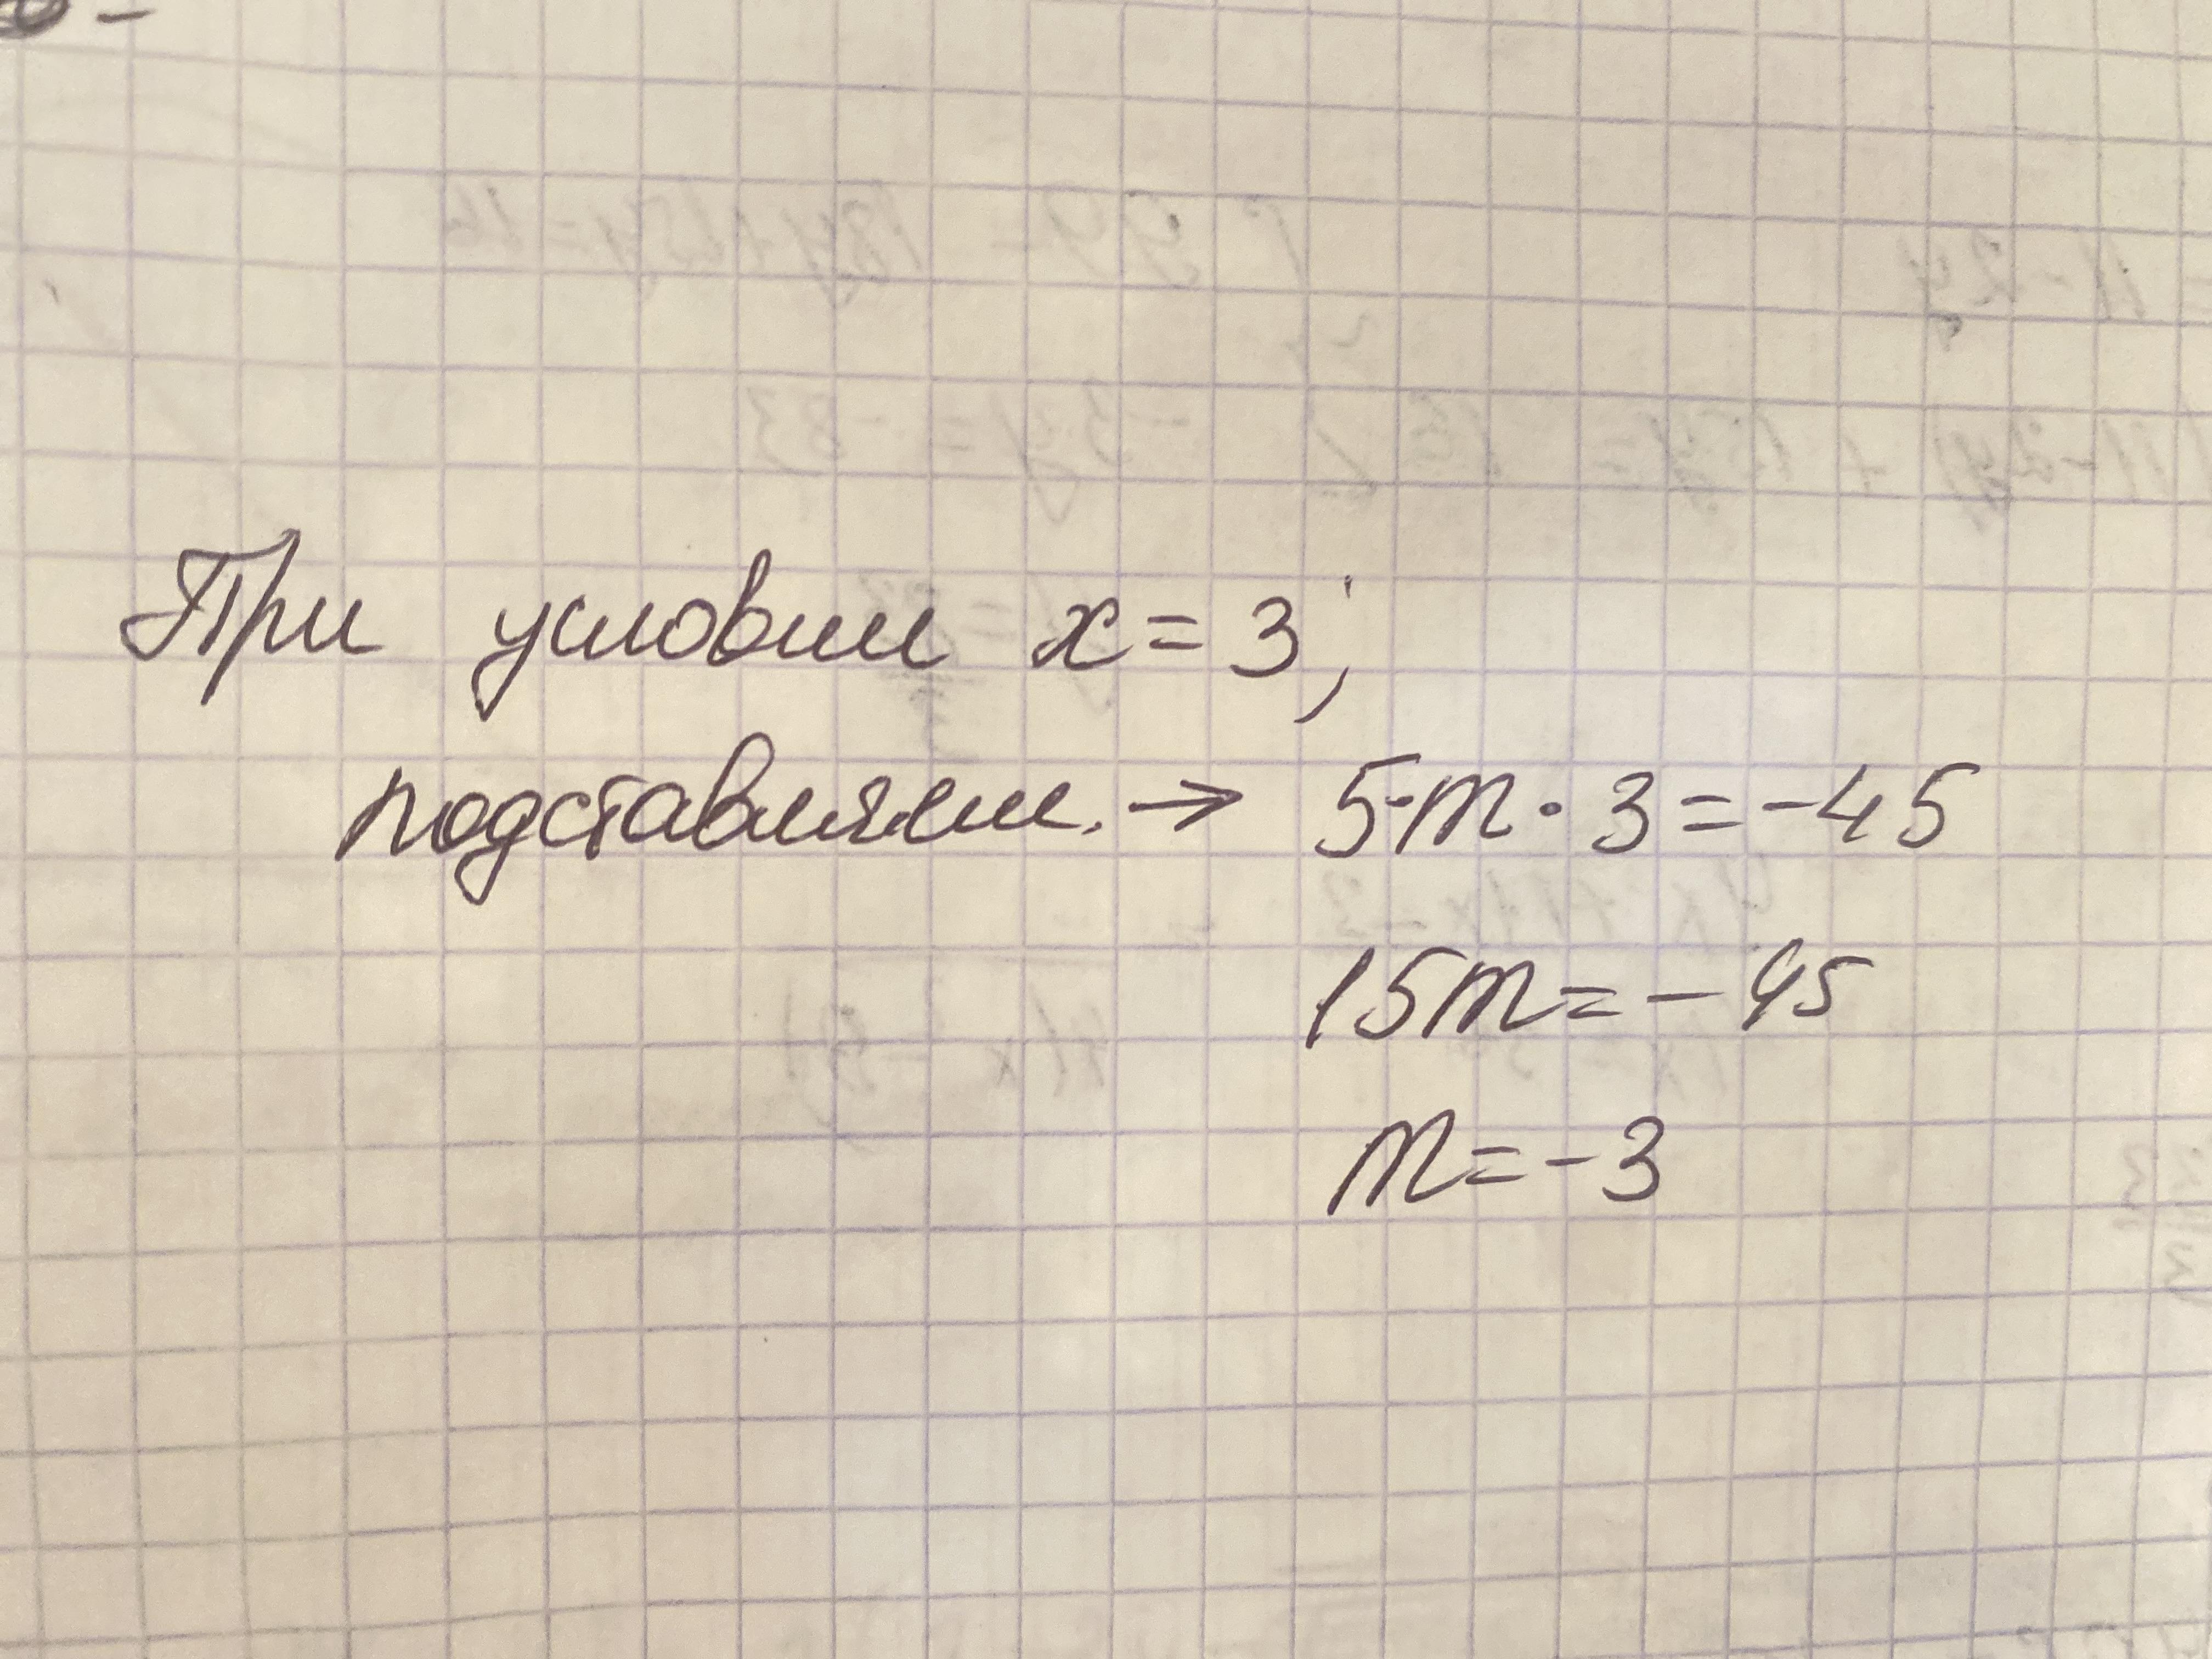 При условии x = 3;
подставляем. → 5·m · 3 = -45
15m = - 45
m = -3